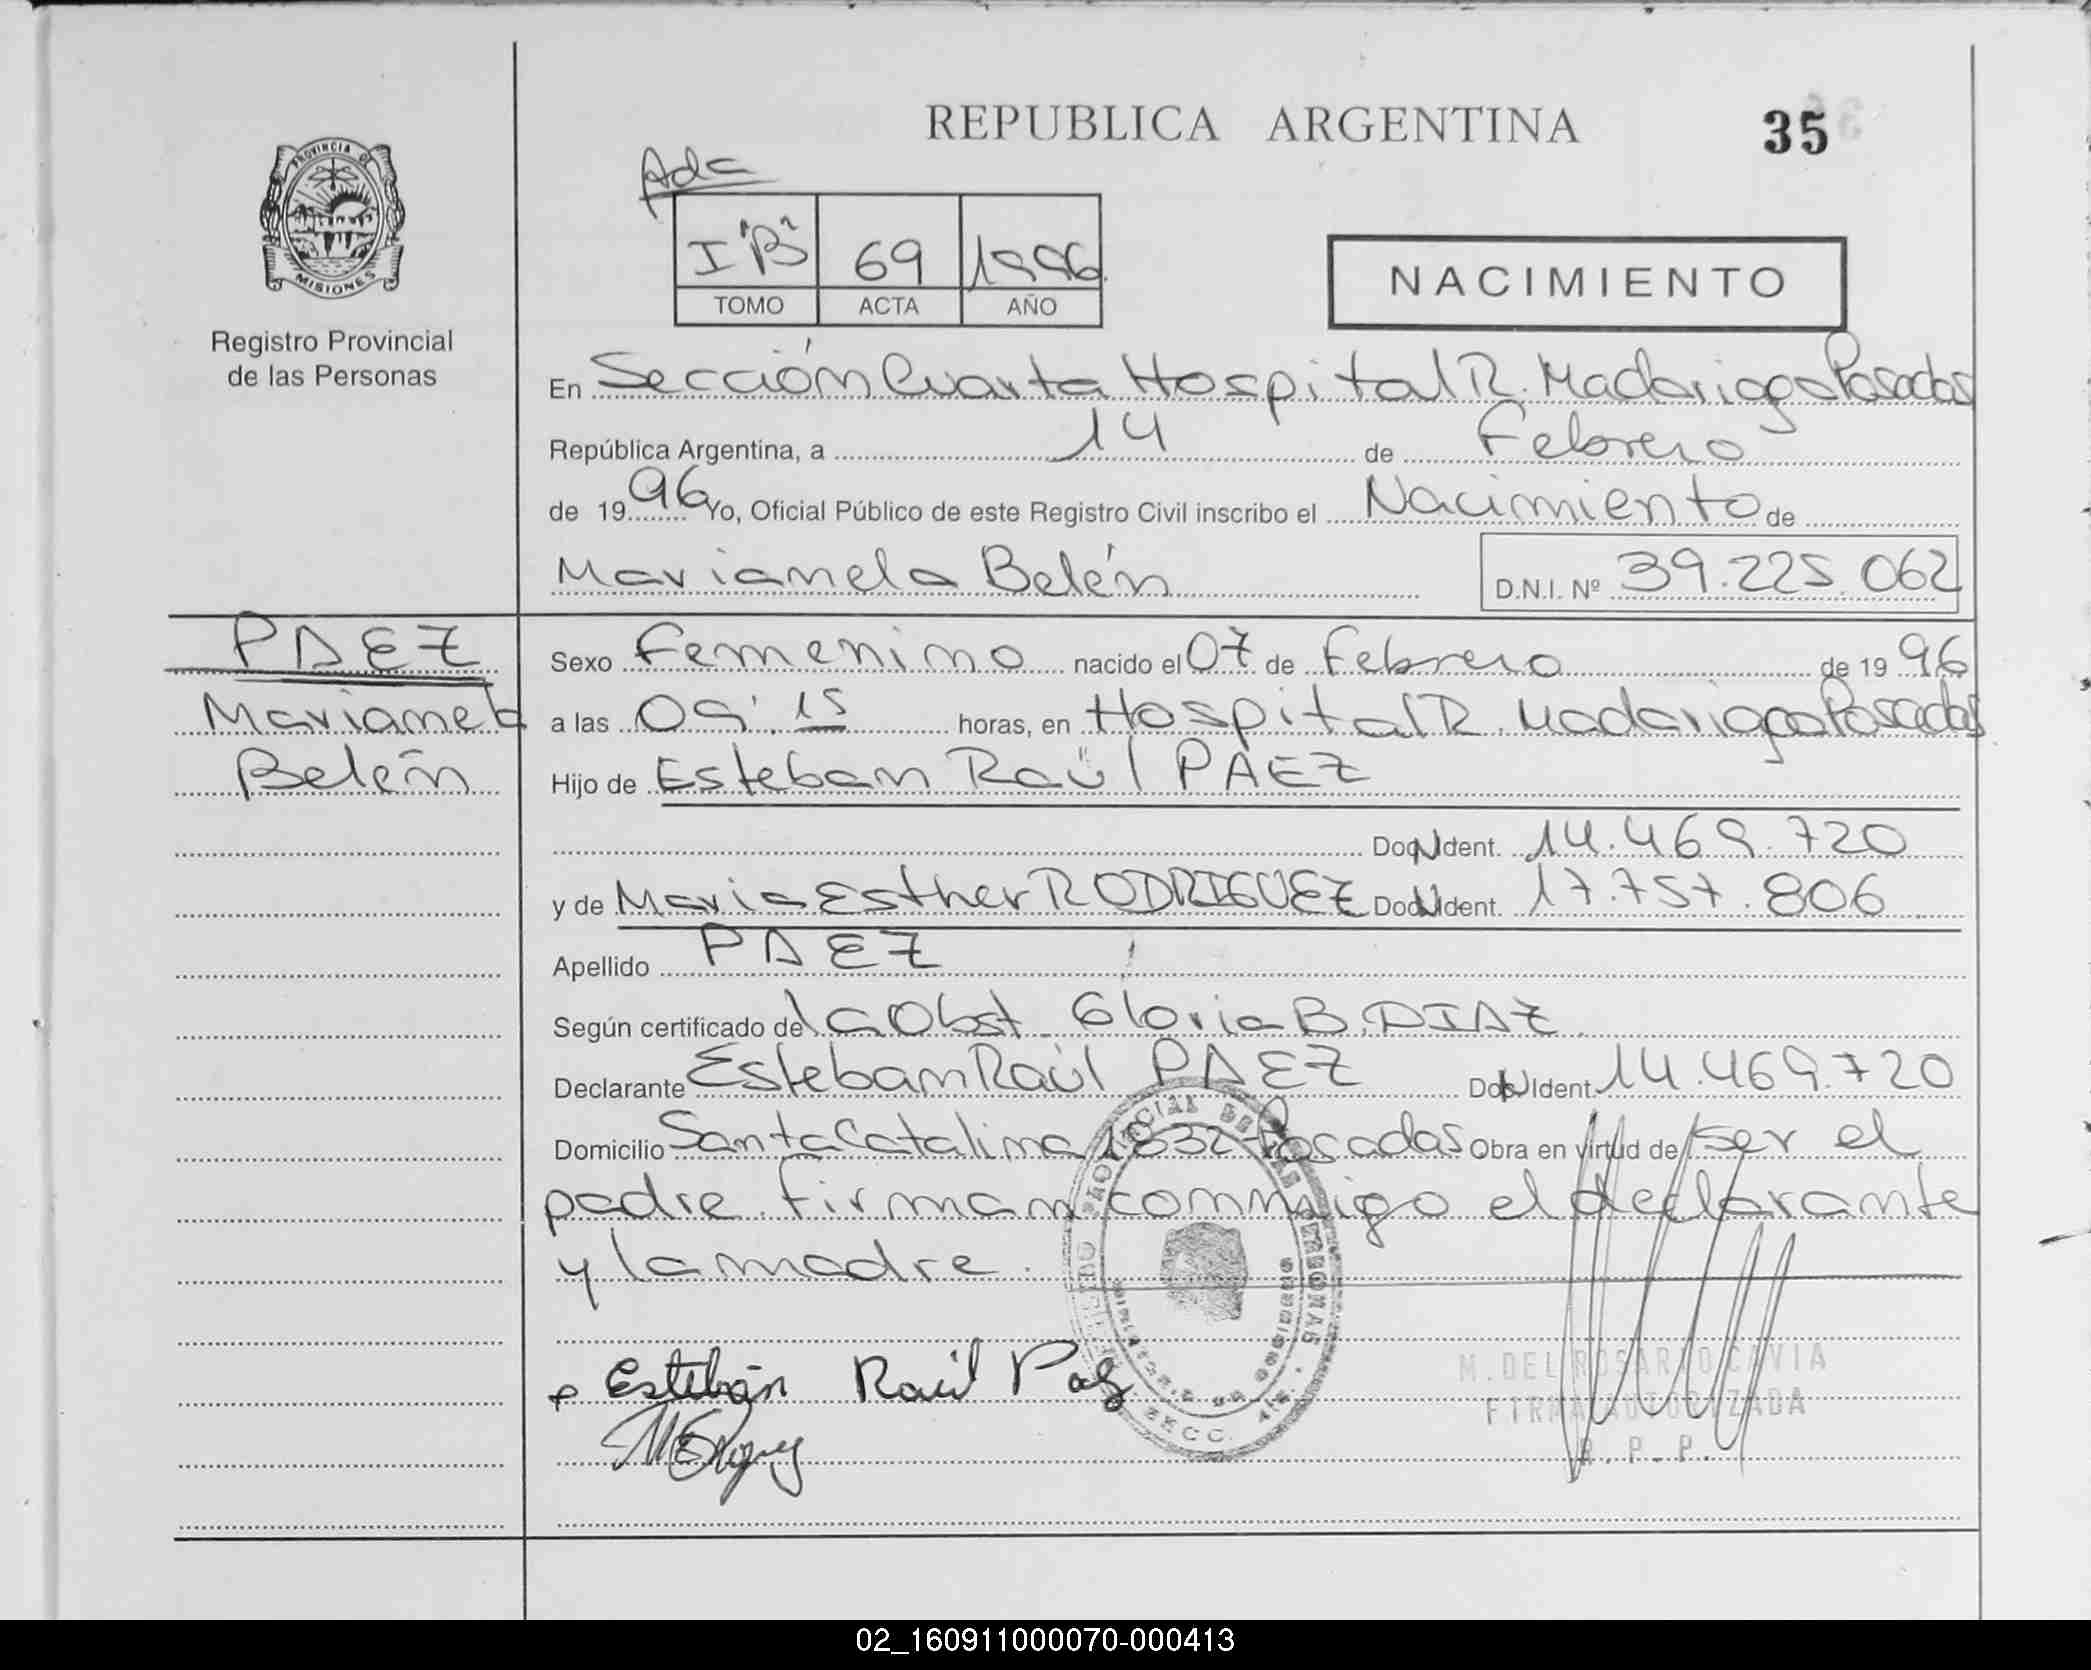 REPUBLICA ARGENTINA 35
PROVINCIA DE
MISIONES
Registro Provincial
de las Personas
Adc
I "B" 69 1996.
TOMO ACTA AÑO
NACIMIENTO
En Sección Cuarta Hospital R. Madariaga Posadas
República Argentina, a 14 de Febrero
de 1996 Yo, Oficial Público de este Registro Civil inscribo el Nacimiento de
Marianela Belén D.N.I. Nº 39.225.062
PAEZ
Marianela
Belén
Sexo Femenino nacido el 07 de Febrero de 1996
a las 09:15 horas, en Hospital R. Madariaga Posadas
Hijo de Esteban Raúl PAEZ
Doc. Ident. 14.469.720
y de Maria Esther RODRIGUEZ Doc. Ident. 17.757.806
Apellido PAEZ
Según certificado de la Obst. Gloria B. DIAZ.
Declarante Esteban Raúl PAEZ Doc. Ident. 14.469.720
Domicilio Santa Catalina 1832-Posadas Obra en virtud de ser el
padre. Firman conmigo el declarante
y la madre.
Esteban Raúl Paez
M. DEL ROSARIO CAVIA
FIRMA AUTORIZADA
R. P. P.
02_160911000070-000413